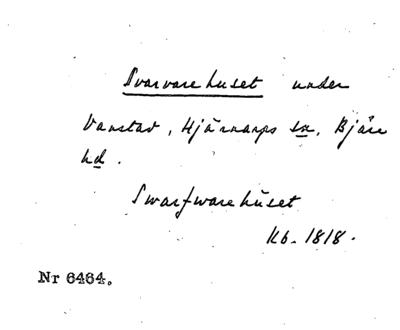 Svarvarehuset under
Vanstad, Hjärnarps sn, Bjäre
hd.
Swarfwarehuset
Kb. 1818.
Nr 6464.